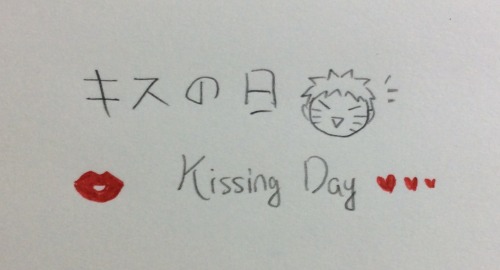 キスの日
Kissing Day